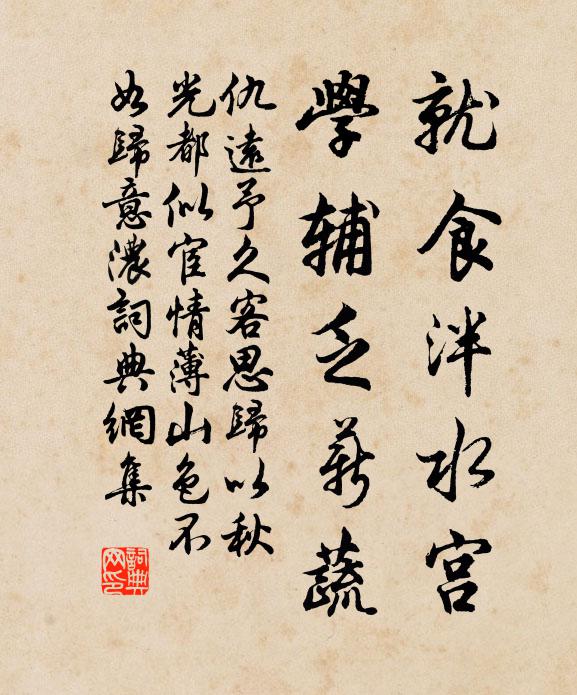 就食泮水宫
學辅乏薪蔬
仇遠予久客思歸以秋
光都似宦情薄山色不
如歸意濃詞典網集
詞典网印